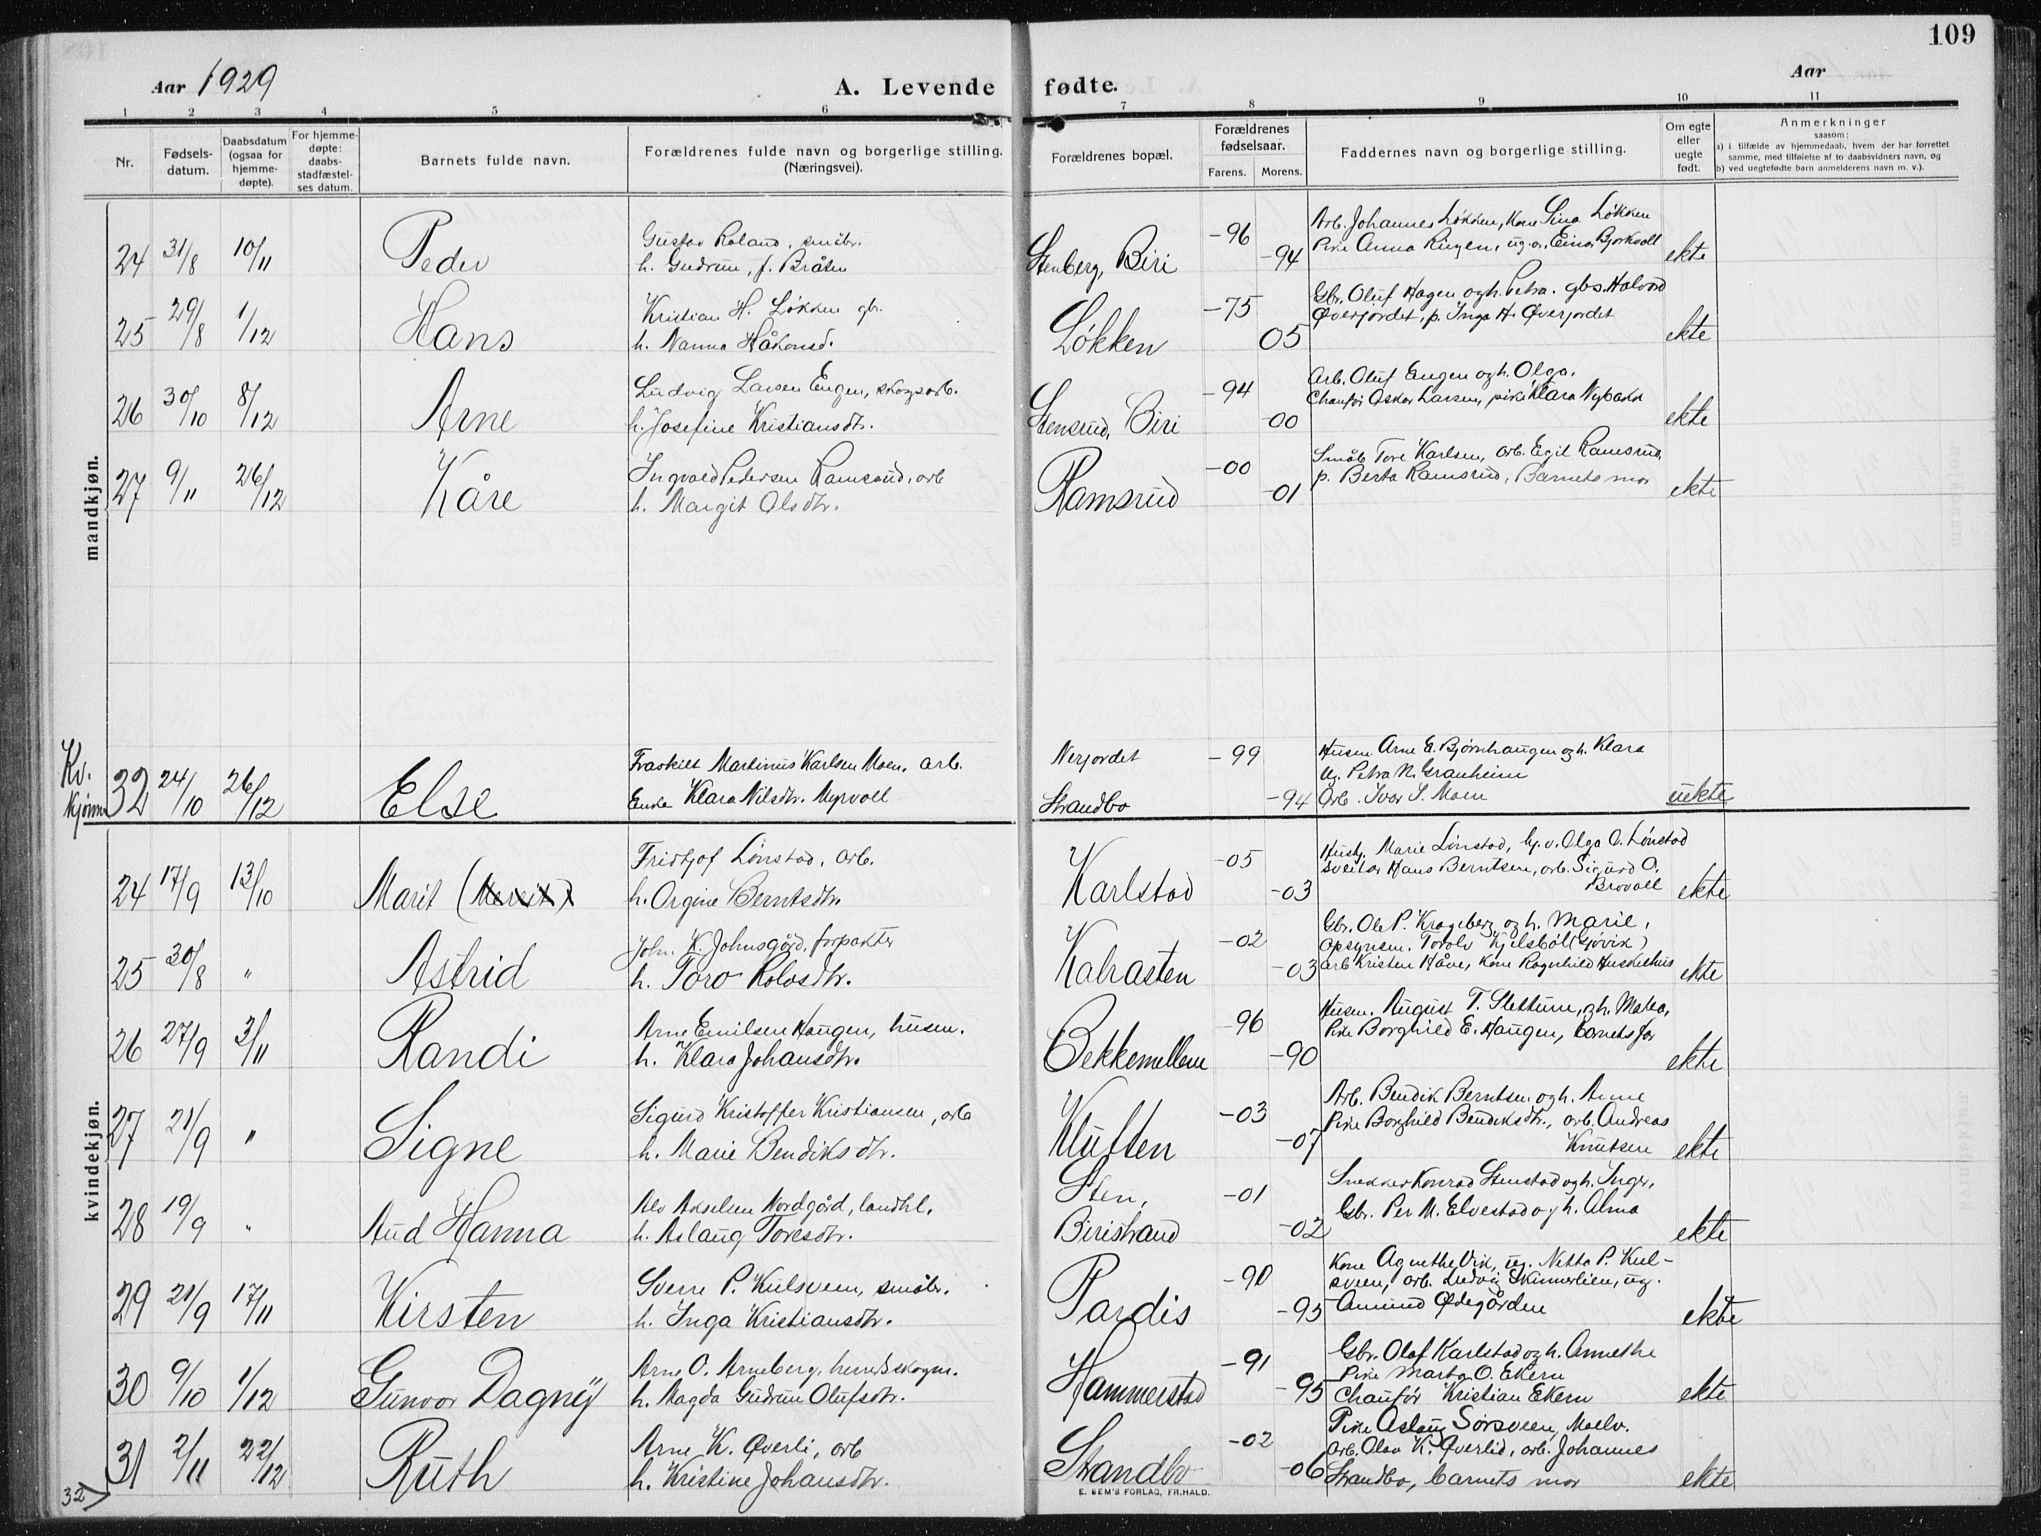 109
Aar 1929
A. Levende fødte.
Aar
1 2 3 4 5 6 7 8 9 10 11
Nr.
Fødsels-
datum.
Daabsdatum
(ogsaa for
hjemme-
døpte).
For hjemme-
døpte:
daabs-
stadfæstel-
ses datum.
Barnets fulde navn.
Forældrenes fulde navn og borgerlige stilling.
(Næringsvei).
Forældrenes bopæl.
Forældrenes
fødselsaar.
Farens. Morens.
Faddernes navn og borgerlige stilling.
Om egte
eller
uegte
født.
Anmerkninger
saasom:
a) i tilfælde av hjemmedaab, hvem der har forrettet
samme, med tilføielse af to daabsvidners navn, og
b) ved uegtefødte barn anmelderens navn m. v.).
mandkjøn.
24 31/8 10/11 Peder
Gustav Roland, småbr.
h. Gudrun, f. Bråten
Stenberg, Biri -96 -94
Arb. Johannes Løkken, kone Lina Løkken
Pike Anna Ringen, ug. Einar Bjørkvoll
ekte
25 29/8 1/12 Hans
Kristian H. Løkken gbr.
h. Nanna Håkonsd.
Løkken -75 05
Gbr. Oluf Hagen og h. Petra. gbs. Halvord
Øverjordet, p. Inga H. Øverjordet
ekte
26 30/10 8/12 Arne
Ludvig Larsen Engen, skogsarb.
h. Josefine Kristiansdtr.
Stensrud, Biri -94 -00
Arb. Oluf Engen og h. Olga.
Chauför Oskar Larsen, pike Klara Nybakk
ekte
27 9/11 26/12 Kåre
Ingvald Pedersen Ramsrud, arb
h. Margit Olsdtr.
Ramsrud -00 -01
Småb. Tore Karlsen, arb. Egil Ramsrud,
p. Berta Ramsrud, Barnets mor
ekte
Kv.
Kjønn
32 24/10 26/12 Else
Fraskilt Martinus Karlsen Moen, arb.
Enke Klara Nilsdtr. Myrvoll
Nerjordet -99
Strandbo -94
Husm. Arne E. Bjørnhaugen og h. Klara
Ug. Petra N. Granheim
Arb. Ivar S. Moen
uekte
kvindekjøn.
24 17/9 13/10 Marit
Fridtjof Lønstad, arb.
h. Orgine Berntsdtr.
Karlstad -05 -03
Husj. Marie Lønstad, Olga O. Lønstad
sveitser Hans Berntsen, arb. Sigurd O.
Brovoll
ekte
25 30/8 " Astrid
John. K. Johnsgård, forpakter
h. Toro Rolvsdtr.
Kalrasten -02 -03
Gbr. Ole P. Kragsberg og h. Marie,
Opsynsm. Torolv Kjelsbøl (Gjøvik)
arb Kristen Håve, kone Ragnhild Huskelhus
ekte
26 27/9 3/11 Randi
Arne Emilsen Haugen, husm.
h. Klara Johansdtr.
Bekkemellem -96 -90
Husm. August T. Slettum, og h. Matea,
Pike Borghild E. Haugen, barnets far
ekte
27 21/9 " Signe
Sigurd Kristoffer Kristiansen, arb
h. Marie Bendiksdtr.
Kluften -03 -07
Arb. Bendik Berntsen og h. Anne
Pike Borghild Bendiksdtr., arb. Andreas
Knutsen
ekte
28 19/9 " Aud Hanna
Alv Akselsen Nordgård, landhl.
h. Aslaug Toresdtr.
Sten,
Biristrand -01 -02
Snekker Konrad Stenstad og h. Inger,
Gbr. Per M. Elvestad og h. Alma
ekte
29 21/9 17/11 Kirsten
Sverre P. Kulsveen, småbr.
h. Inga Kristiansdtr.
Pardis -90 -95
Kone Agnethe Vik, ug. Netta P. Kul-
sveen, arb. Ludvig Skinnerlien, ug.
Amund Ødegården
ekte
30 9/10 1/12 Gunvor Dagny
Arne O. Arneberg, herredsskogm.
h. Magda Gudrun Olufsdtr.
Hammerstad -91 -95
Gbr. Olaf Karlstad og h. Annethe
Pike Marta O. Ekern
Chauför Kristian Ekern
ekte
31 2/11 22/12 Ruth
Arne K. Øverli, arb
h. Kristine Johansdtr.
Strandbo -02 -06
Pike Aslaug Sørsveen, Moelv.
Arb. Olav K. Øverlid, arb. Johannes
Strandbo, barnets mor
ekte
32 >
E. SEM'S FORLAG, FR.HALD.